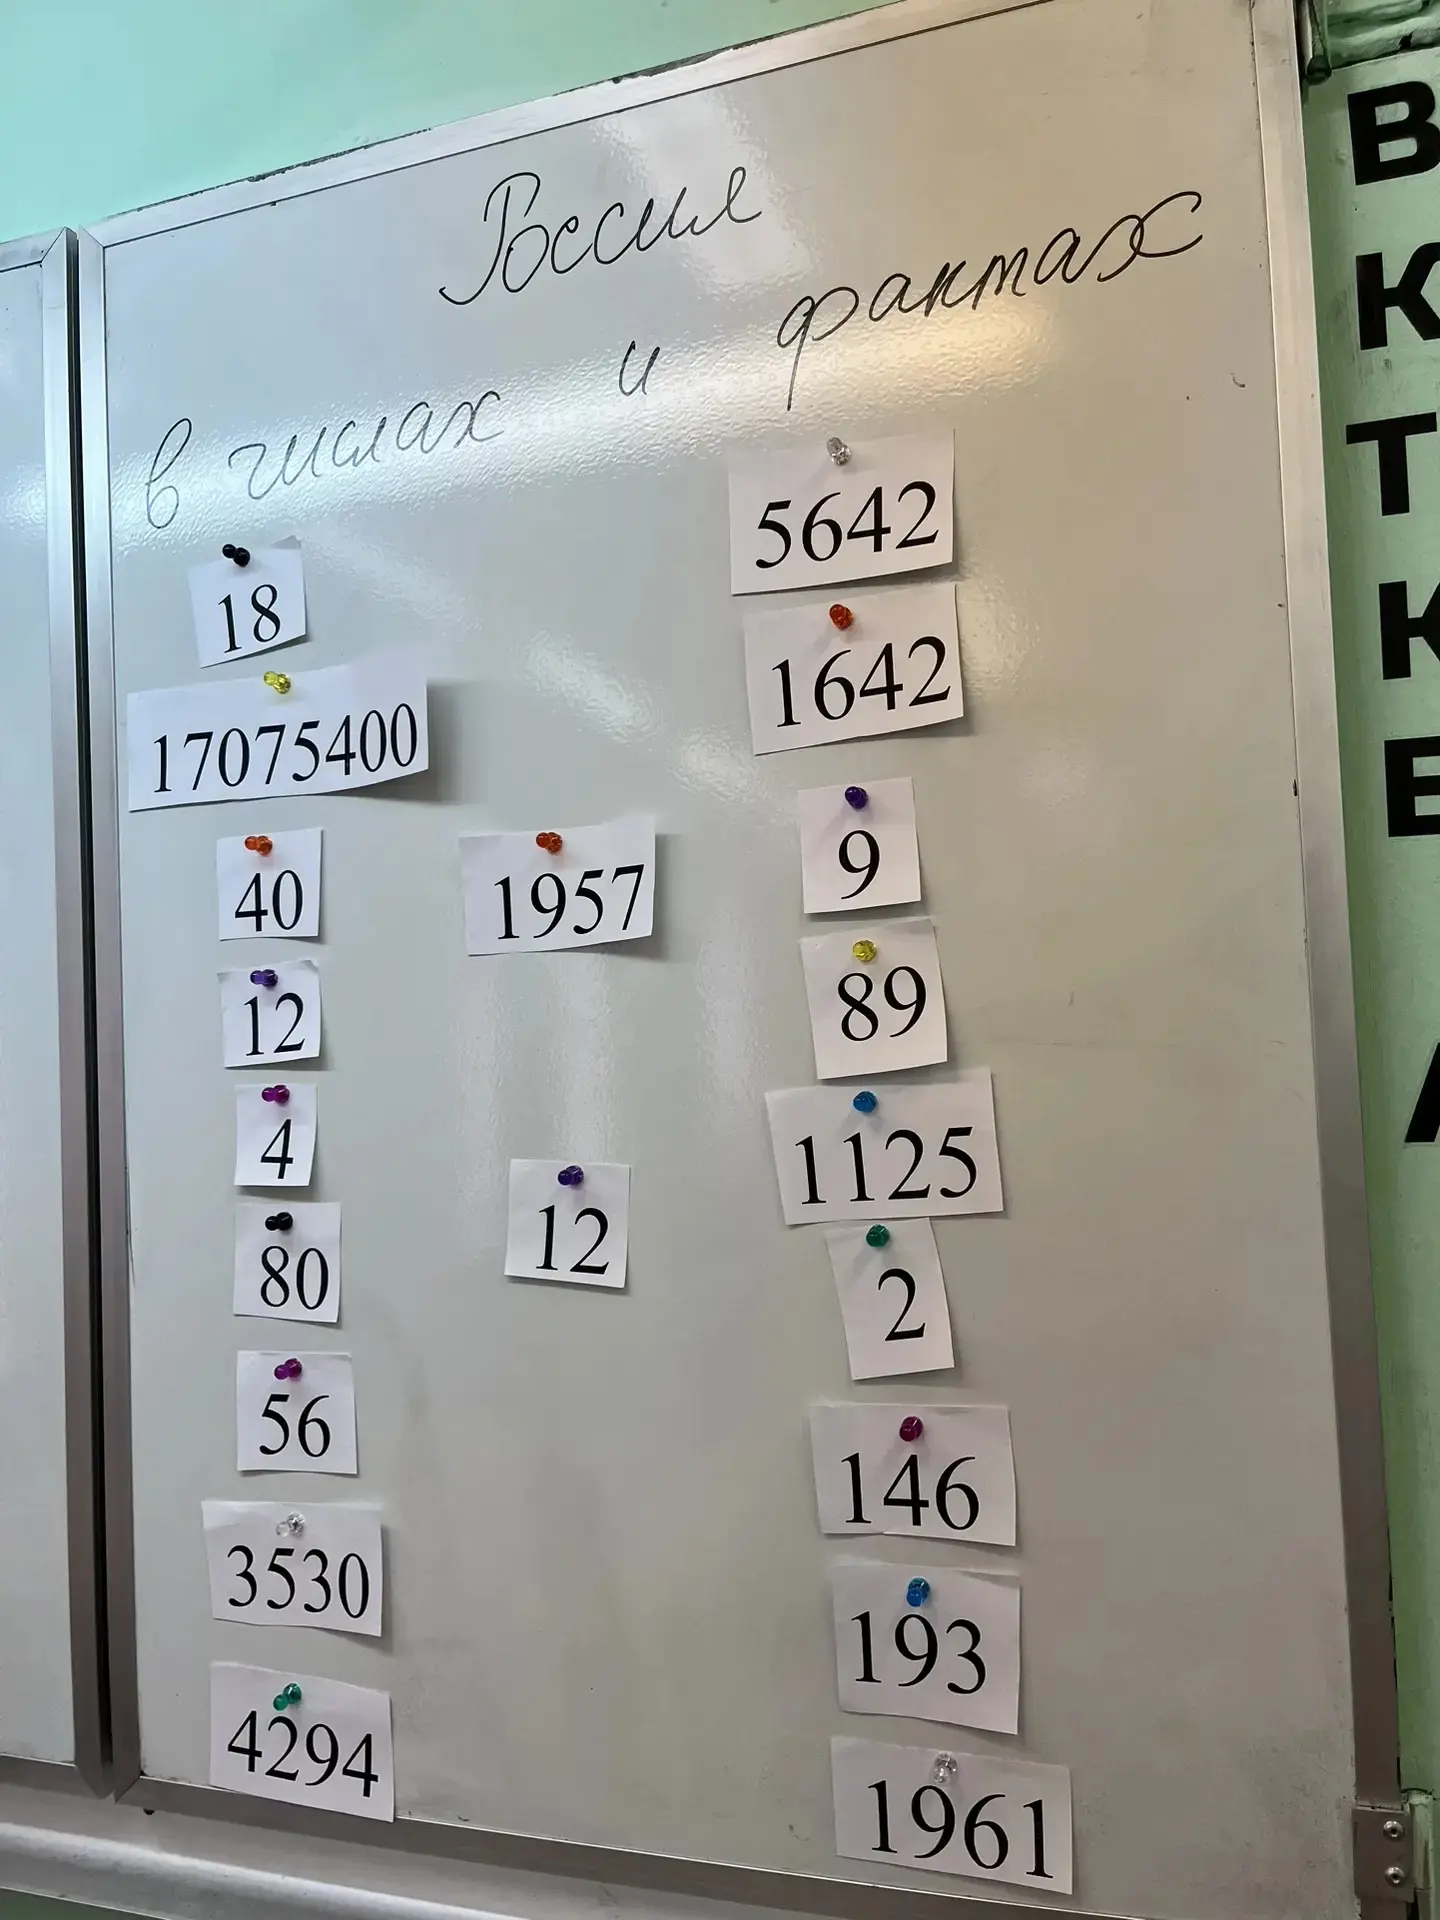 Россия
в числах и фактах
18
17075400
40
12
4
80
56
3530
4294
1957
12
5642
1642
9
89
1125
2
146
193
1961
В
К
Т
К